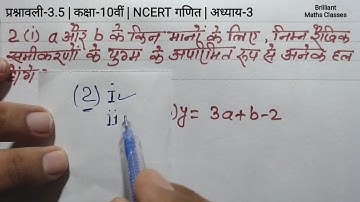 प्रश्नावली-3.5 | कक्षा-10वीं | NCERT गणित | अध्याय-3
Brilliant
Maths Classes
2 (i) a और b के किन मानों के लिए, निम्न रैखिक
समीकरणों के युग्म के अपरिमित रूप से अनेक हल
होंगे
(2) i
ii
)y = 3a+b-2